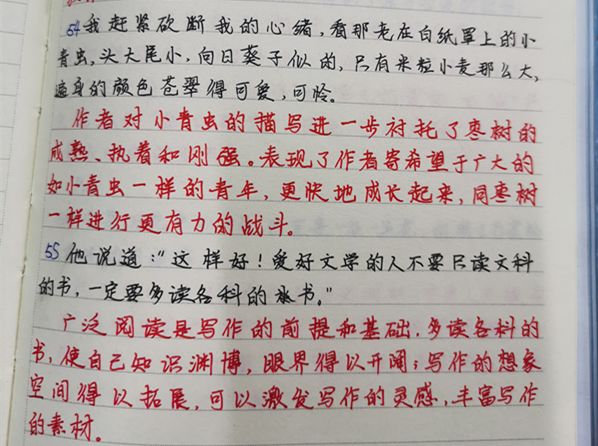 54我赶紧砍断我的心绪，看那老在白纸罩上的小
青虫，头大尾小，向日葵子似的，只有半粒小麦那么大，
遍身的颜色苍翠得可爱，可怜。
作者对小青虫的描写进一步衬托了枣树的
成熟、执着和刚强。表现了作者寄希望于广大的
如小青虫一样的青年，更快地成长起来，同枣树
一样进行更有力的战斗。
55他说道：“这样好！爱好文学的人不要只读文科
的书，一定要多读各科的书。”
广泛阅读是写作的前提和基础，多读各科的
书，使自己知识渊博，眼界得以开阔；写作的想象
空间得以拓展，可以激发写作的灵感，丰富写作
的素材。